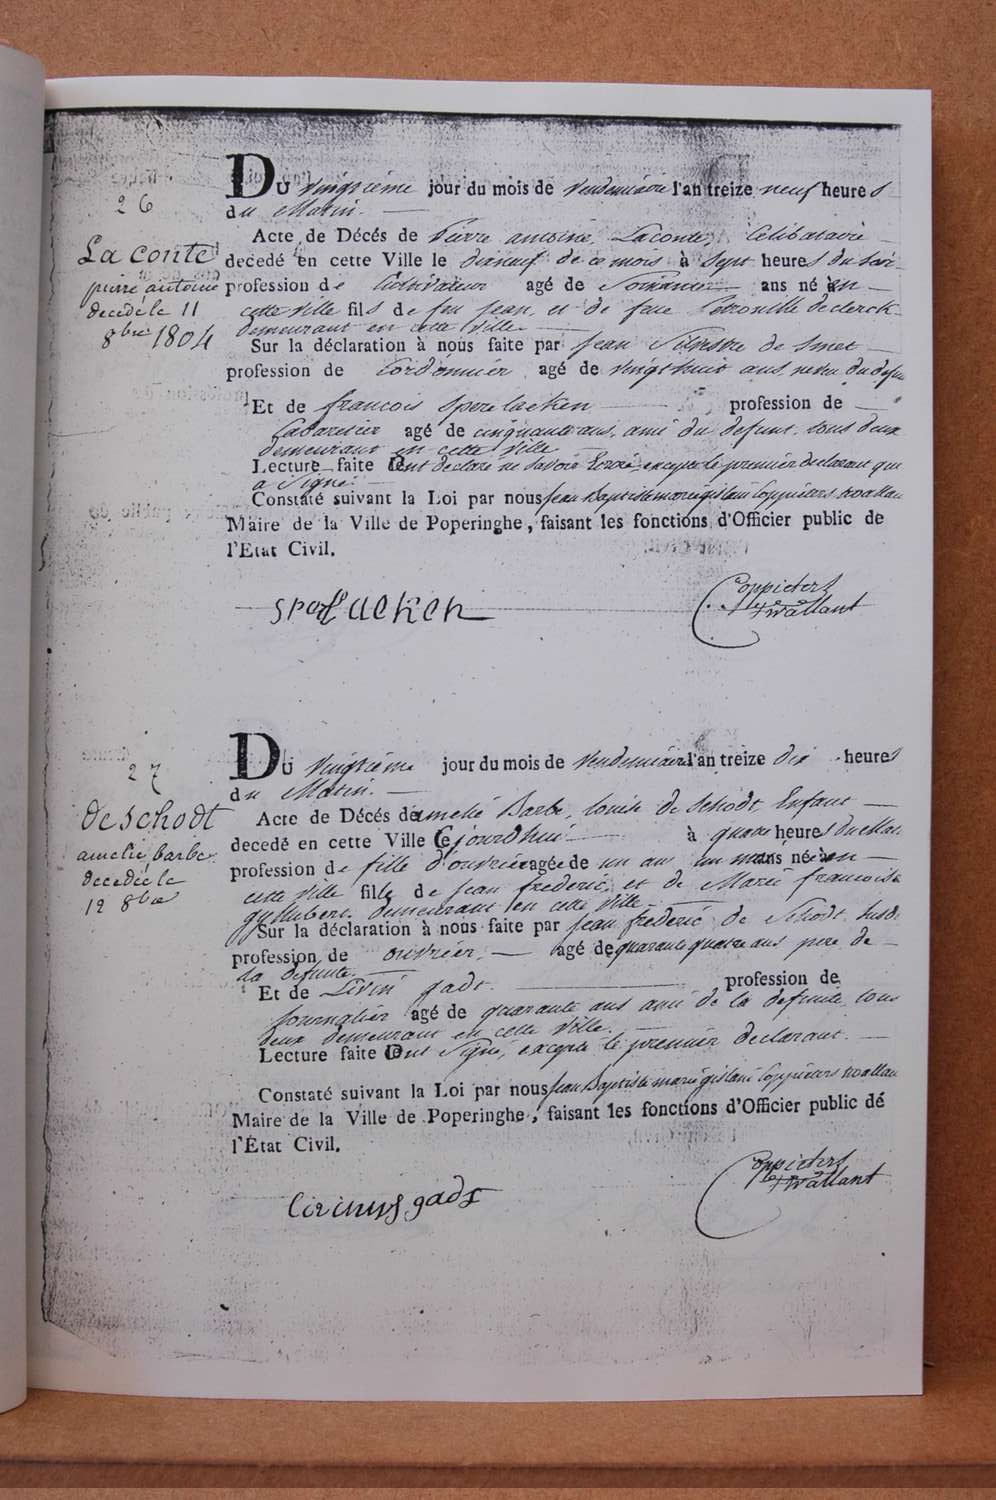 26
La conte
pierre antoine
decedé le 11
8bre 1804
DU vingtième jour du mois de vendemiaire l'an treize neuf heures
du Matin.
Acte de Décés de Pierre antoine Laconte, Celibataire
decedé en cette Ville le dixneuf de ce mois à sept heures du soir
profession de Cultivateur agé de Soixante ans né en
cette ville fils de feu jean, et de feue Petronille declerck
demeurant en cette Ville
Sur la déclaration à nous faite par jean Silvestre de Smet
profession de Cordonnier agé de vingthuit ans neveu du defunt
Et de francois Sperelacken profession de
Cabaretier agé de cinquante ans, ami du defunt. tous deux
demeurant en cette Ville
Lecture faite ont declaré ne savoir Ecrire, excepté le premier declarant qui
a Signé
Constaté suivant la Loi par nous Jean Baptiste marie gislain Coppieters twallant
Maire de la Ville de Poperinghe, faisant les fonctions d'Officier public de
l'Etat Civil.
sperlacken
Coppieters
twallant
27
deschodt
amelie barbe
decedée le
12 8bre
DU vingtième jour du mois de vendemiaire l'an treize dix heures
du Matin.
Acte de Décés de amelie Barbe, louise de Schodt, Enfant
decedé en cette Ville Cejourdhui à quatre heures du Matin
profession de fille d'ouvrier agée de un an un mois née en
cette ville fille de jean frederic, et de Marie francoise
demeurant en cette Ville
Sur la déclaration à nous faite par jean frederic de Schodt
profession de ouvrier agé de quarante quatre ans pere de
la defunte.
Et de Livin gadt. profession de
Journalier agé de quarante ans ami de la defunte, tous
deux demeurant en cette Ville.
Lecture faite ont Signé, excepté le premier declarant.
Constaté suivant la Loi par nous Jean Baptiste marie gislain Coppieters twallant
Maire de la Ville de Poperinghe, faisant les fonctions d'Officier public dé
l'État Civil.
gadt
Coppieters
twallant